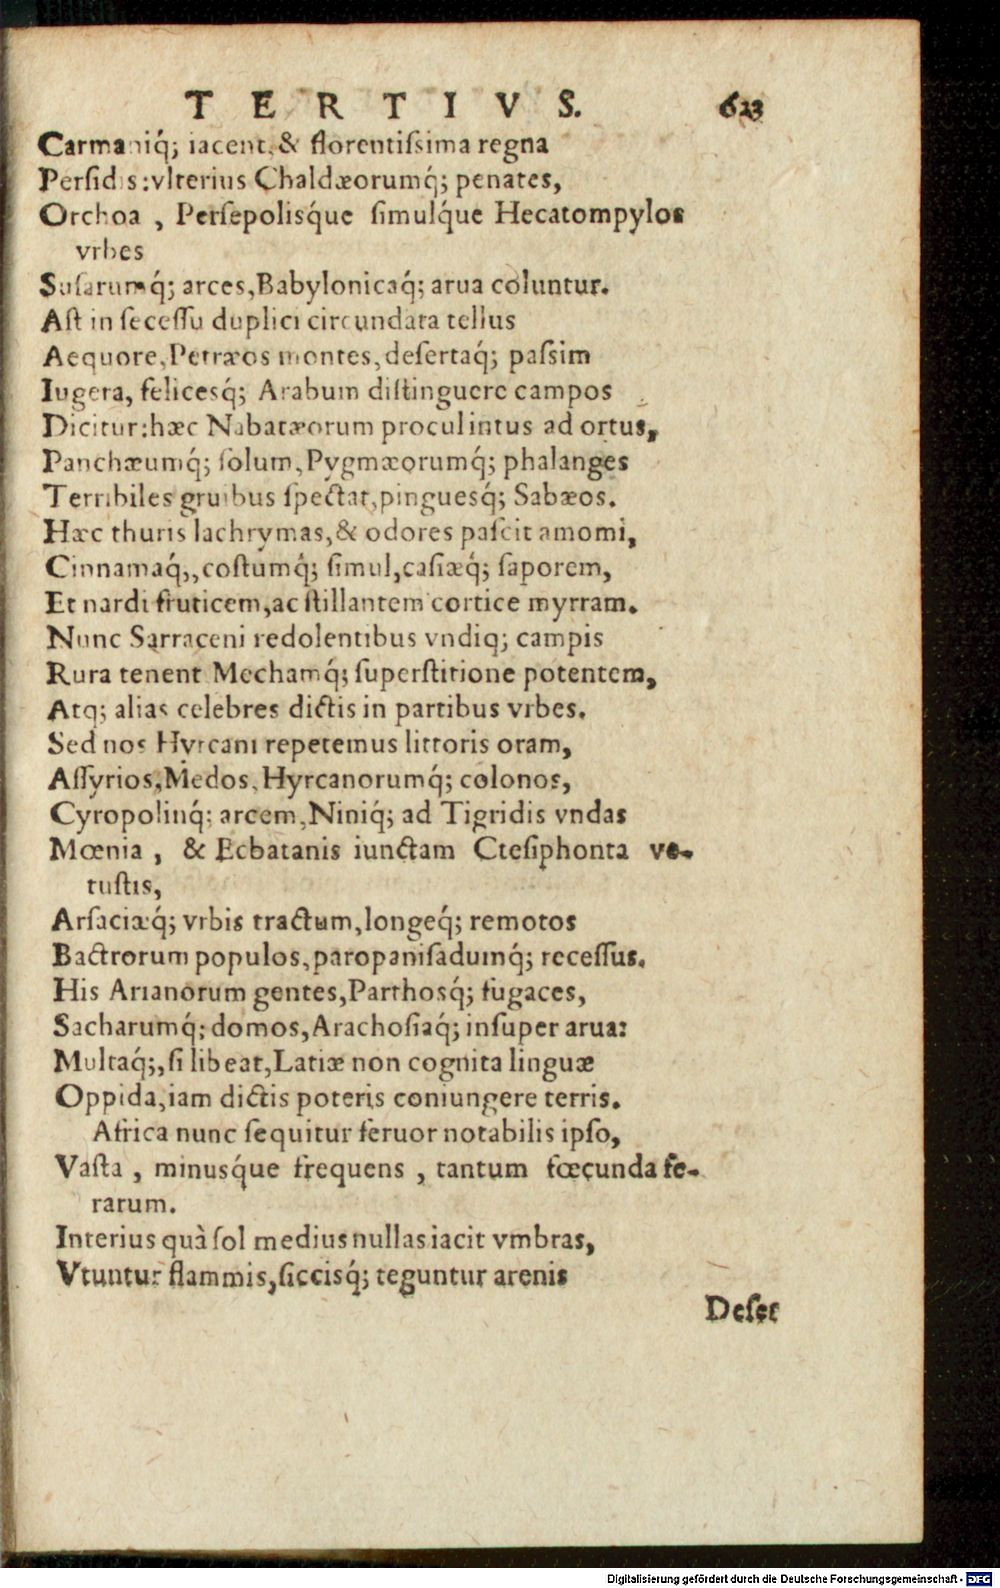 TERTIVS. 623
Carmaniq́; iacent, & florentiſsima regna
Perſidis: vlterius Chaldæorumq́; penates,
Orchoa , Perſepoliſq́ue ſimulq́ue Hecatompylos
vrbes
Suſarumq́; arces, Babylonicaq́; arua coluntur.
Aſt in ſeceſſu duplici circundata tellus
Aequore, Petræos montes, deſertaq́; paſsim
Iugera, felicesq́; Arabum diſtinguere campos
Dicitur: hæc Nabatæorum procul intus ad ortus,
Panchæumq́; ſolum, Pygmæorumq́; phalanges
Terribiles gruibus ſpectat, pinguesq́; Sabæos.
Hæc thuris lachrymas, & odores paſcit amomi,
Cinnamaq́;, coſtumq́; ſimul, caſiæq́; ſaporem,
Et nardi fruticem, ac ſtillantem cortice myrram.
Nunc Sarraceni redolentibus vndiq; campis
Rura tenent Mechamq́; ſuperſtitione potentem,
Atq; alias celebres dictis in partibus vrbes.
Sed nos Hyrcani repetemus littoris oram,
Aſſyrios, Medos, Hyrcanorumq́; colonos,
Cyropolinq́; arcem, Niniq́; ad Tigridis vndas
Mœnia , & Ecbatanis iunctam Cteſiphonta ve-
tuſtis,
Arſaciæq́; vrbis tractum, longeq́; remotos
Bactrorum populos, paropaniſadumq́; receſſus.
His Arianorum gentes, Parthosq́; fugaces,
Sacharumq́; domos, Arachoſiaq́; inſuper arua:
Multaq́;, ſi libeat, Latiæ non cognita linguæ
Oppida, iam dictis poteris coniungere terris.
Africa nunc ſequitur feruor notabilis ipſo,
Vaſta , minuſq́ue frequens , tantum fœcunda fe-
rarum.
Interius quà ſol medius nullas iacit vmbras,
Vtuntur flammis, ſiccisq́; teguntur arenis
Deſer
Digitalisierung gefördert durch die Deutsche Forschungsgemeinschaft - DFG